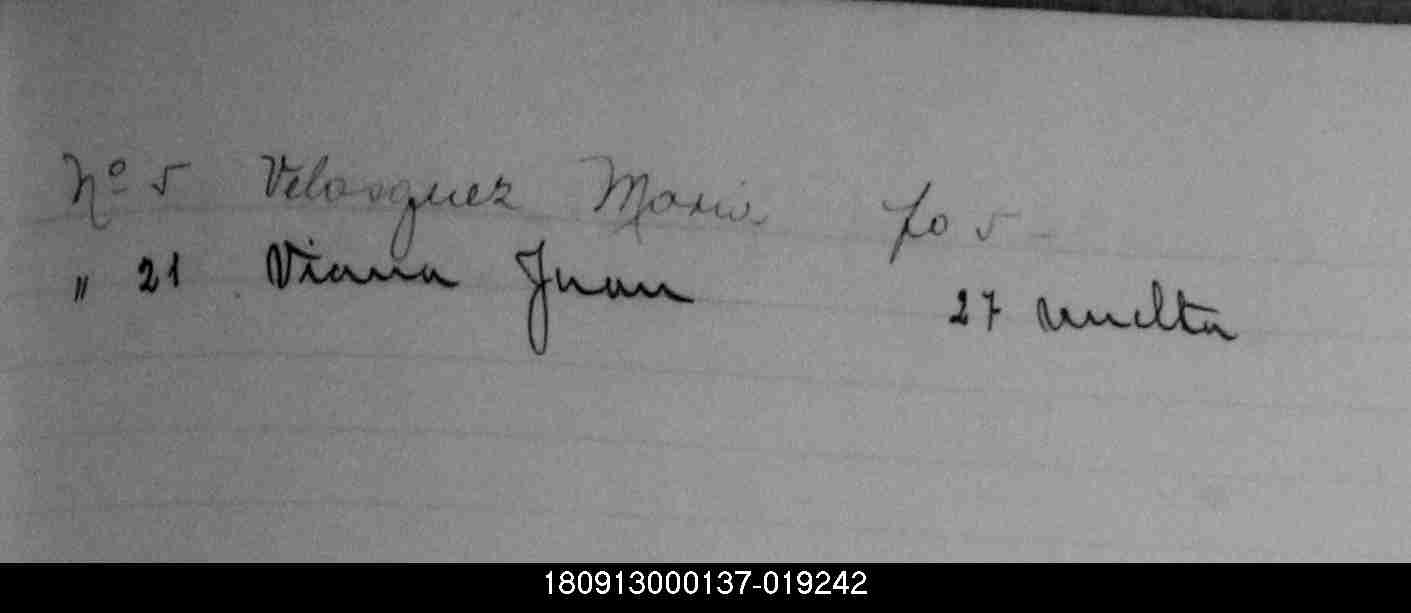 Nº 5 Velasquez Maria fo 5-
" 21 Viana Juan 27 vuelta
180913000137-019242